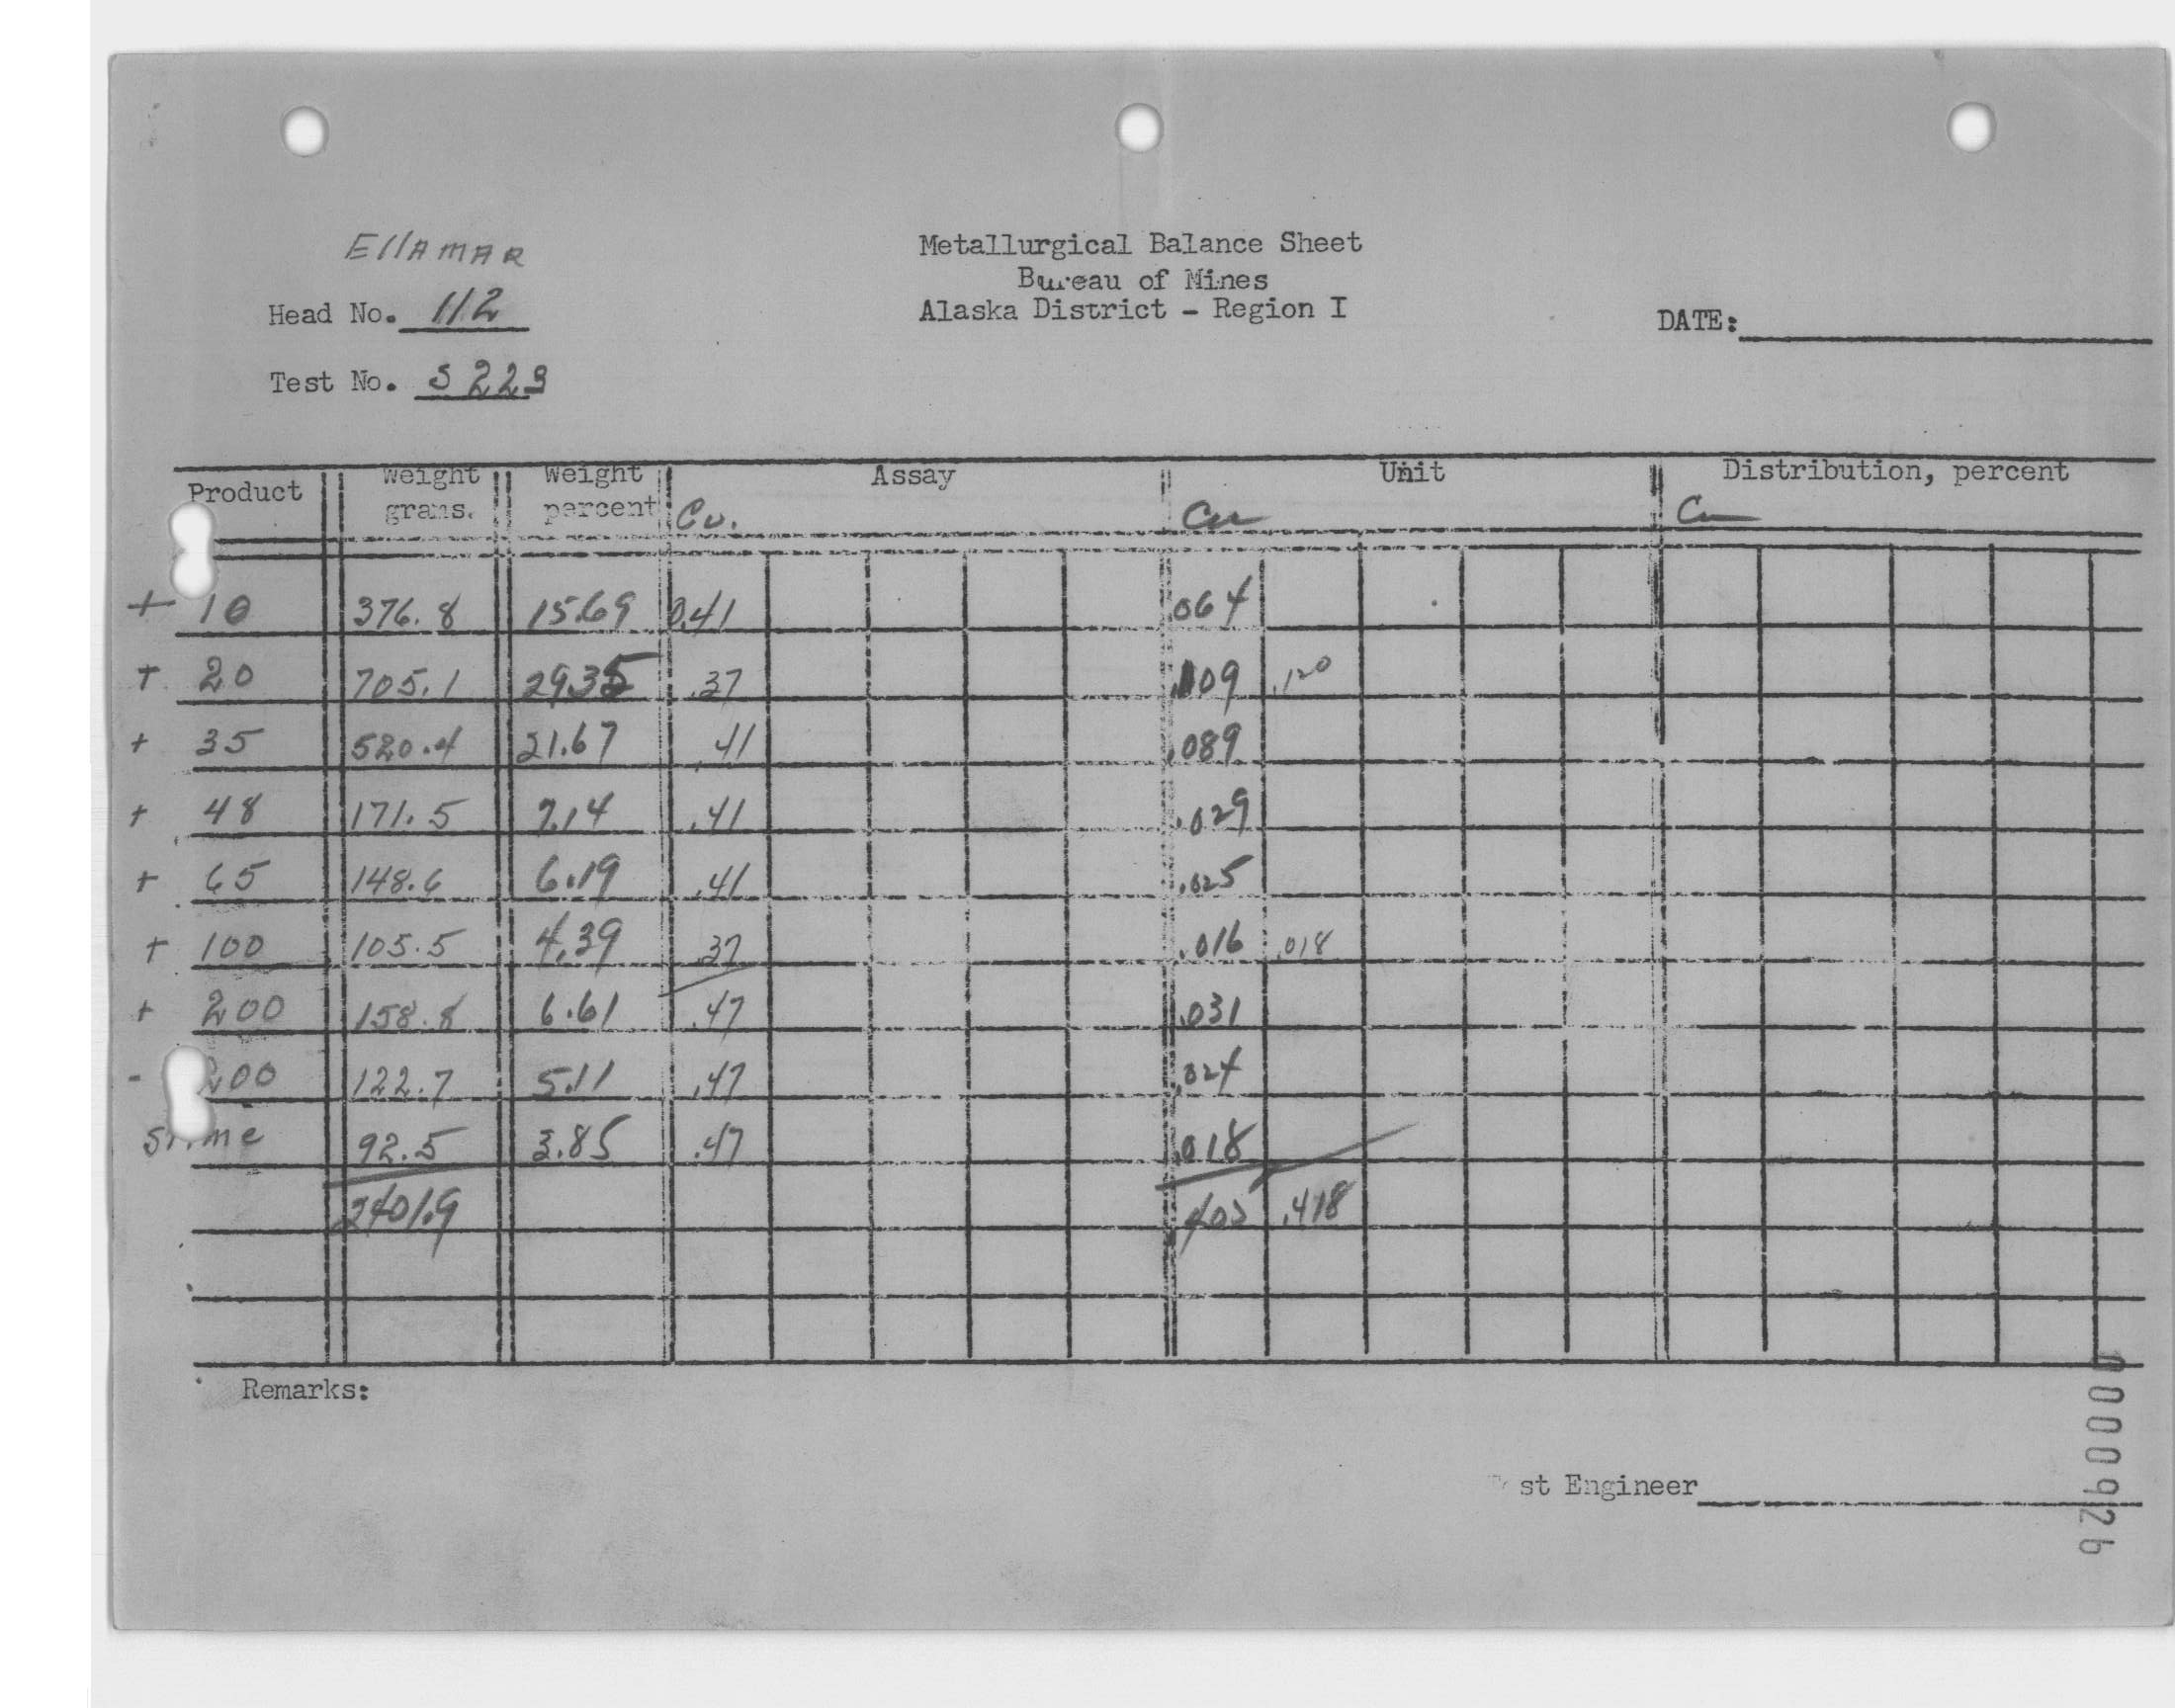 Ellamar
Metallurgical Balance Sheet
Bureau of Mines
Alaska District - Region I
Head No. 112
DATE:
Test No. S 223
Product Weight grams. Weight percent Assay Unit Distribution, percent
Cu. Cu Cu
+ 10 376.8 15.69 0.41 .064
+ 20 705.1 29.35 .37 .109 .120
+ 35 520.4 21.67 .41 .089
+ 48 171.5 7.14 .41 .029
+ 65 148.6 6.19 .41 .025
+ 100 105.5 4.39 .37 .016 .018
+ 200 158.8 6.61 .47 .031
- 200 122.7 5.11 .47 .024
Slime 92.5 3.85 .47 .018
2401.9 .418
Remarks:
Test Engineer